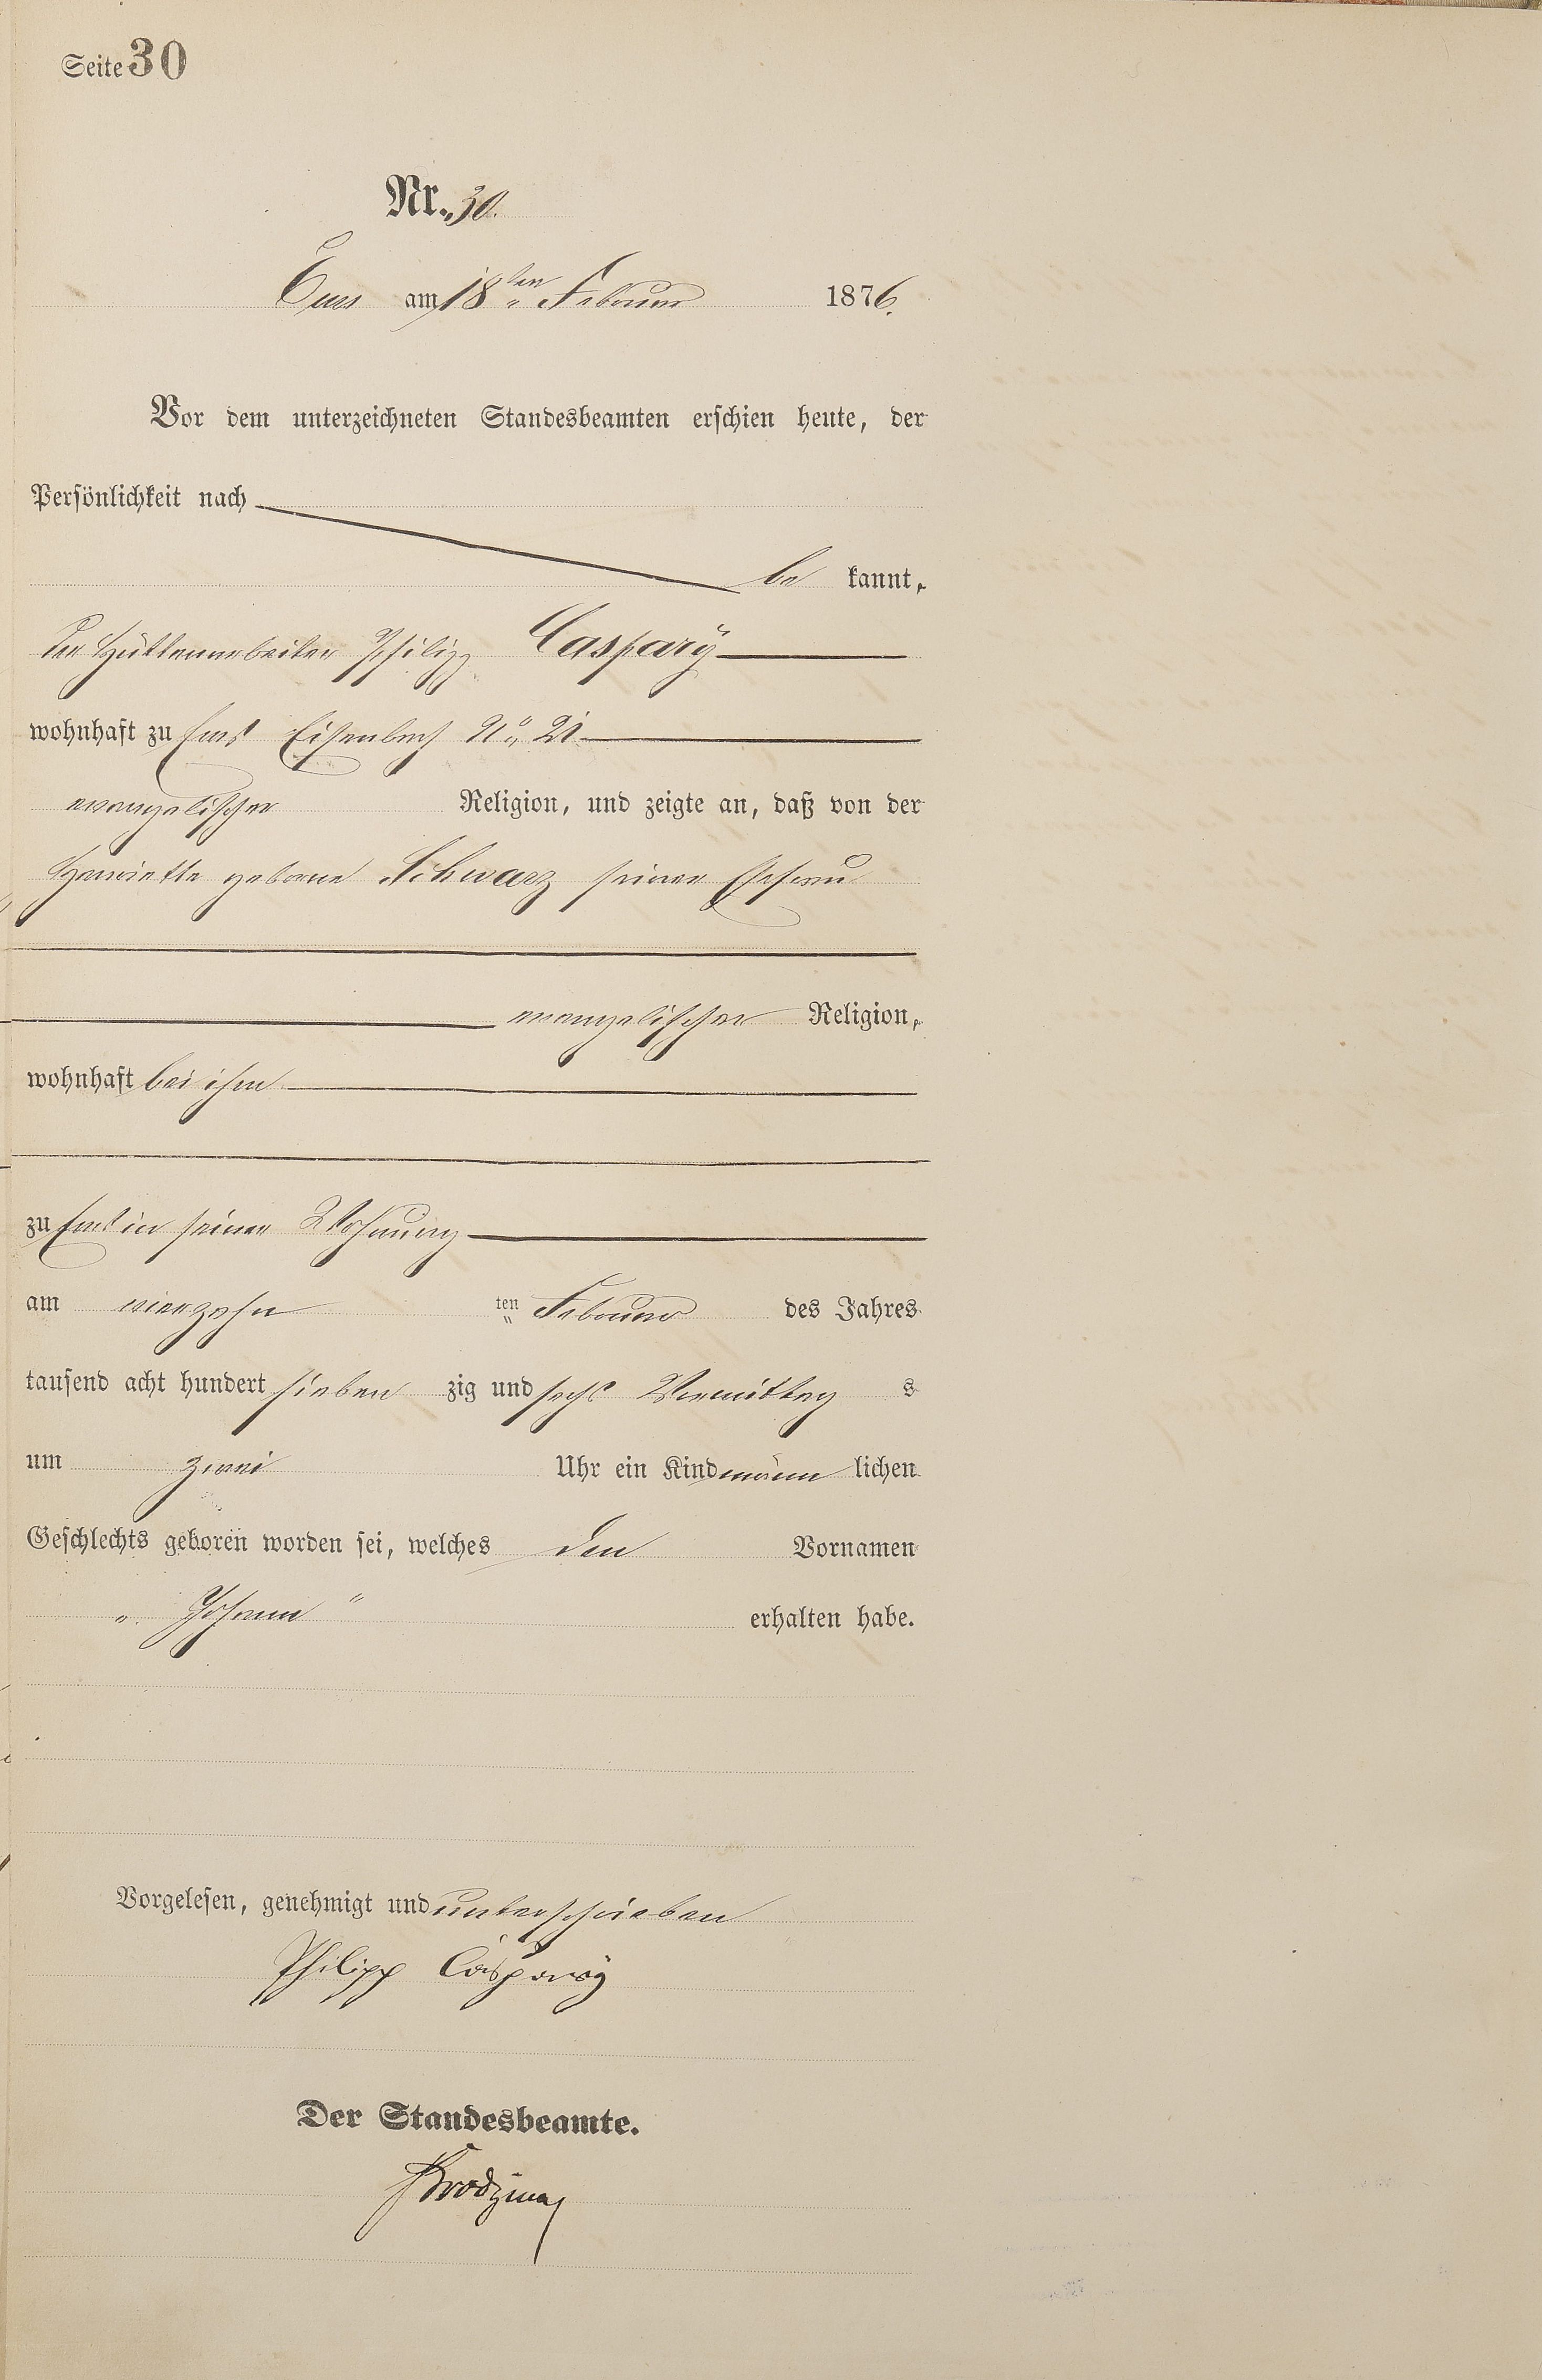 Seite 30
Nr. 30.
Ems am 18ten Februar 1876.
Vor dem unterzeichneten Standesbeamten erschien heute, der
Persönlichkeit nach
be kannt,
der Hüttenarbeiter Philipp Caspary
wohnhaft zu Ems Eisenbach No
evangelischer Religion, und zeigte an, daß von der
Henriette geborne Schwarz seiner Ehefrau
evangelischer Religion,
wohnhaft bei ihm
zu Ems in seiner Wohnung
am vierzehn ten Februar des Jahres
tausend acht hundert sieben zig und sechs Vormittag s
um zwei Uhr ein Kind männ lichen
Geschlechts geboren worden sei, welches den Vornamen
"Johann" erhalten habe.
Vorgelesen, genehmigt und unterschrieben
Philipp Caspary
Der Standesbeamte.